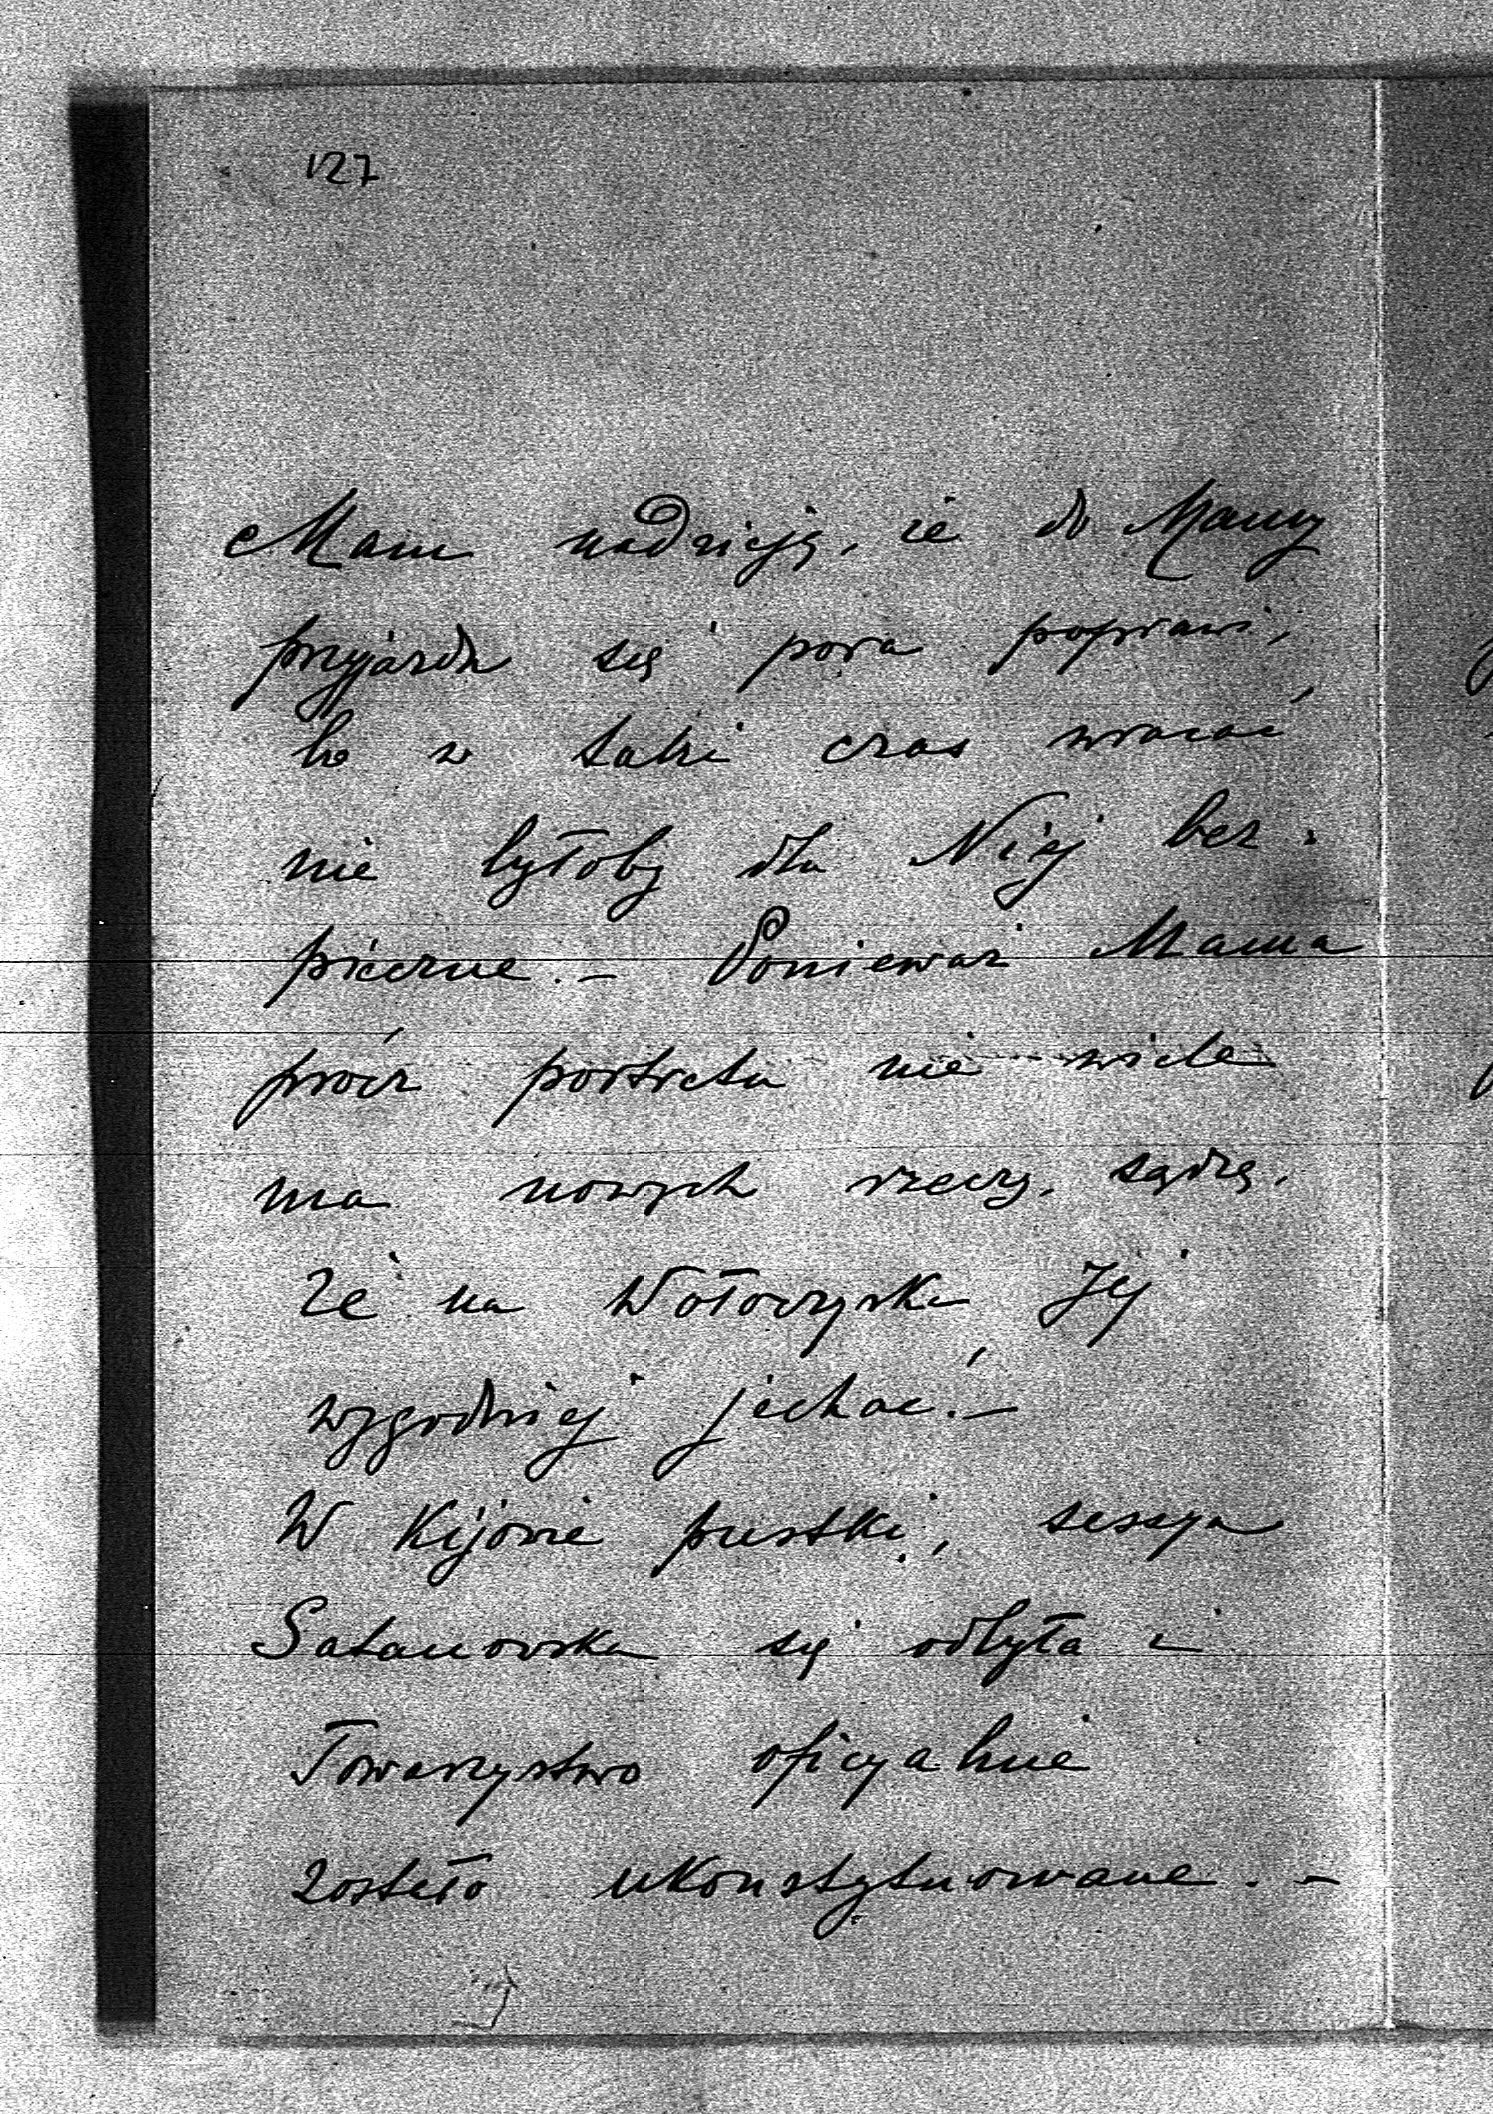 127
Mam nadzieję, że do Mamy
przyjazdu się pora poprawi,
bo w taki czas wracać
nie byłoby dla Niej bez-
pieczne. – Ponieważ Mama
prócz portretu nie wiele
ma nowych rzeczy, sądzę,
że na Wołoczyska Jej
wygodniej jechać. –
W Kijowie pustki, sessya
Satanowska się odbyła i
Towarzystwo oficyalnie
zostało ukonstytuowane. –